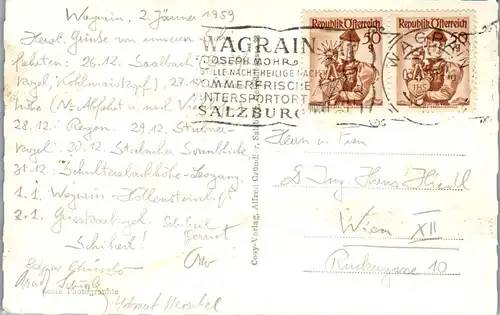 Wagrain, 2. Jänner 1959
Herzl. Grüße von unseren
fahrten: 26.12. Saalbach
kogel, Kohlmaiskopf), 27.12.
höhe (N-Abfahrt u. nach
28.12. Regen. 29.12. Stubner-
kogel. 30.12. Stubacher Sonnblick
31.12. Schultersbachhöhe-Leogang
1.1. Wagrain-Höllensteinlift
2.1. Griessenkogel. Schiheil
Schiheil! Gernot
Edgar
Helmut Herschel
Echte Photographie
WAGRAIN
JOSEPH MOHR
STILLE NACHT HEILIGE NACHT
SOMMERFRISCHE
INTERSPORTORT
SALZBURG
Republik Österreich
50
g
Republik Österreich
50
g
WAGRAIN
Cosy-Verlag, Alfred Gründler, Salzburg
Herrn u. Frau
D. Ing. Hans
Wien XII
Ruckergasse 10